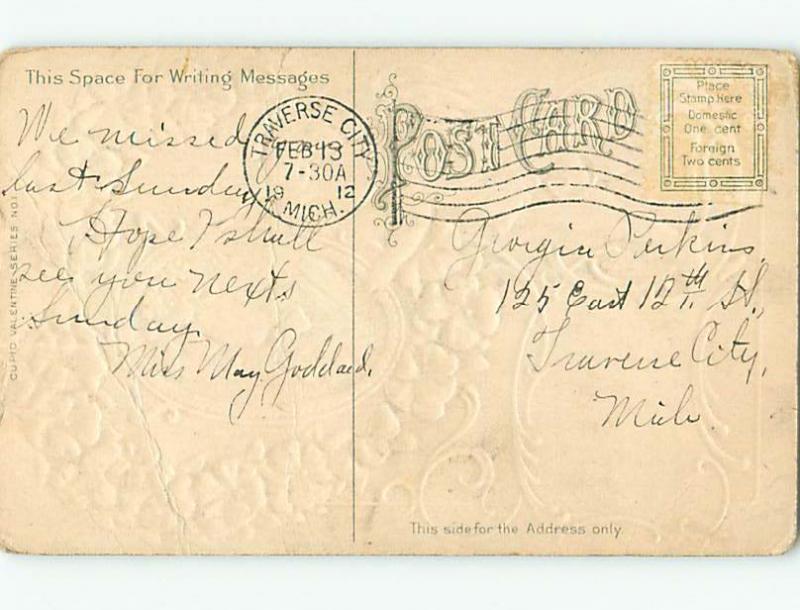 This Space For Writing Messages
We missed you
last Sunday
Hope I shall
see you next
Sunday
Miss May Goddard.
CUPID VALENTINE SERIES NO.1
TRAVERSE CITY
FEB 13
7-30A
19 12
MICH.
POST CARD
Place
Stamp Here
Domestic
One cent
Foreign
Two cents
Georgia Perkins,
125 East 12th St.,
Traverse City,
Mich.
This side for the Address only.